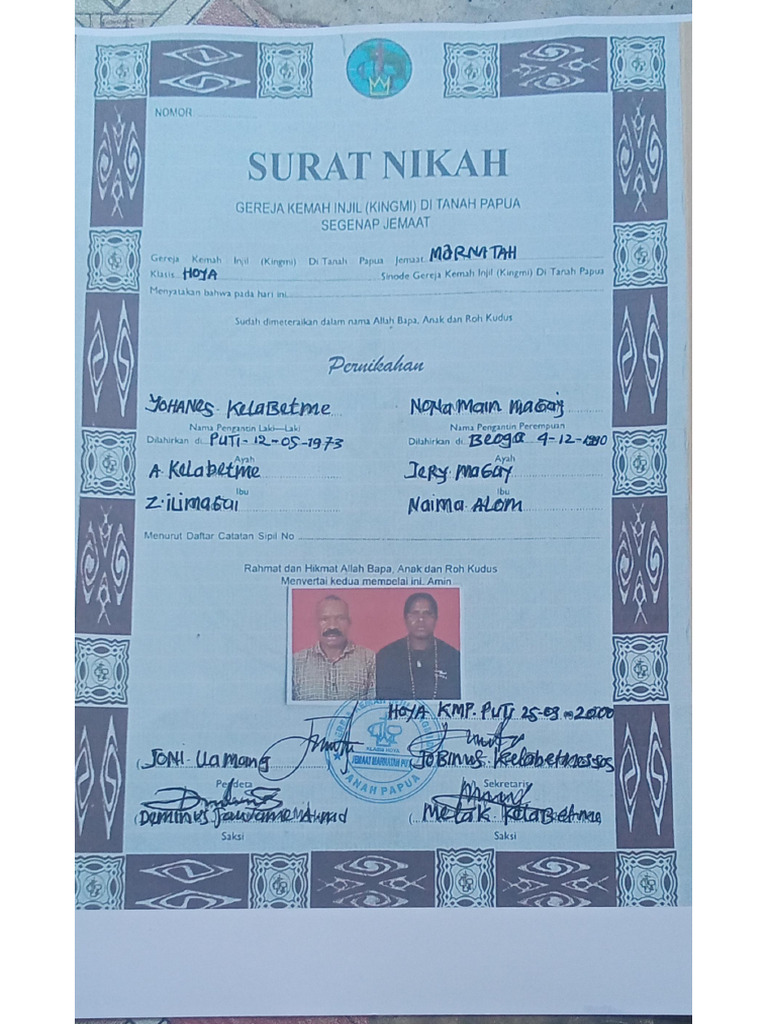 NOMOR
SURAT NIKAH
GEREJA KEMAH INJIL (KINGMI) DI TANAH PAPUA
SEGENAP JEMAAT
Gereja Kemah Injil (Kingmi) Di Tanah Papua Jemaat MARNATAH
Klasis HOYA Sinode Gereja Kemah Injil (Kingmi) Di Tanah Papua
Menyatakan bahwa pada hari ini
Sudah dimeteraikan dalam nama Allah Bapa, Anak dan Roh Kudus
Pernikahan
YOHANES KelaBetme NONA MAIN MAGAY
Nama Pengantin Laki—Laki Nama Pengantin Perempuan
Dilahirkan di PUTI - 12-05-1973 Dilahirkan di Beoga 4-12-1980
Ayah Ayah
A. Kelabetme JERY MAGAY
Ibu Ibu
Z. ILIMAGAI Naima ALOM
Menurut Daftar Catatan Sipil No
Rahmat dan Hikmat Allah Bapa, Anak dan Roh Kudus
Menyertai kedua mempelai ini. Amin
HOYA KMP. PUTI 25-03-2000
JONI UAMANG JOBINUS
Pendeta Sekretaris
KLASIS HOYA
JEMAAT MARNATAH
TANAH PAPUA
Deminus Metak KelaBetme
Saksi Saksi